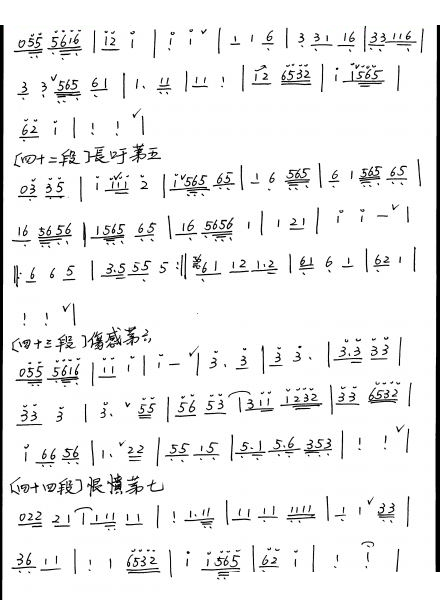 055 5616 | i2 i | i i ˇ | 1 1 6 | 3 31 16 | 33116 |
3 3ˇ565 61 | 1. 11 | 11 1 | i2 6532 | i 1565 |
62 i | 1 1 ˇ|
[四十二段]長吁第五
03 35 | i iii 2 | iˇ565 65 | 1 6 565 | 6 1 565 65 |
16 5656 | 1565 65 | 16 5656 1 | 1 21 | i i — ˇ|
‖: 6 6 5 | 3.5 55 5 :‖ 61 12 1.2 | 61 6 1 | 62 1 |
1 1 ˇ|
[四十三段]傷感第六
055 5616 | ii i | i — ˇ| 3. 3 | 3 3. | 3.3 33 |
33 3 | 3. ˇ55 | 56 53 | 311 1232 | 33 6532 |
i 66 56 | 1. ˇ22 | 55 15 | 5.1 5.6 353 | 1 1 ˇ|
[四十四段]恨憤第七
022 21 | 1 11 11 | 1 1.11 | 11 11 1111 | 1 1 ˇ33 |
36 11 | 1 1 6532 | i i565 | 62 i | 1 1 |